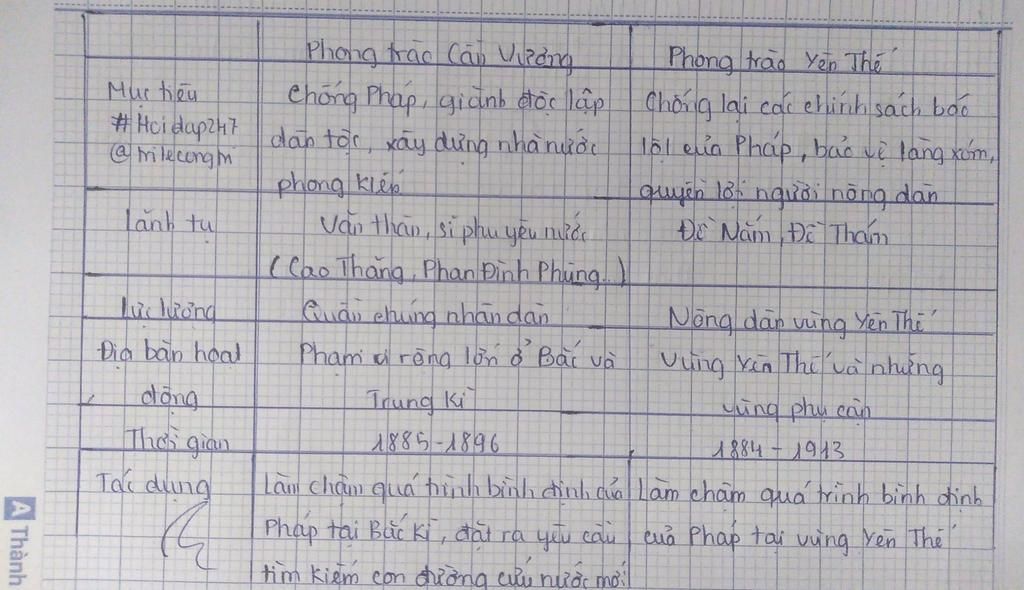 Phong trào Cần Vương
Phong trào Yên Thế
Mục tiêu
#Hoidap247
@trilecongm
Chống Pháp, giành độc lập
dân tộc, xây dựng nhà nước
phong kiến
Chống lại các chính sách bóc
lột của Pháp, bảo vệ làng xóm,
quyền lợi người nông dân
lãnh tụ
Văn thân, sĩ phu yêu nước
(Cao Thắng, Phan Đình Phùng...)
Đề Nắm, Đề Thám
lực lượng
Quần chúng nhân dân
Nông dân vùng Yên Thế
Địa bàn hoạt
động
Phạm vi rộng lớn ở Bắc và
Trung Kì
Vùng Yên Thế và những
vùng phụ cận
Thời gian
1885-1896
1884-1913
Tác dụng
Làm chậm quá trình bình định của
Pháp tại Bắc Kì, đặt ra yêu cầu
tìm kiếm con đường cứu nước mới
Làm chậm quá trình bình định
của Pháp tại vùng Yên Thế
A Thành